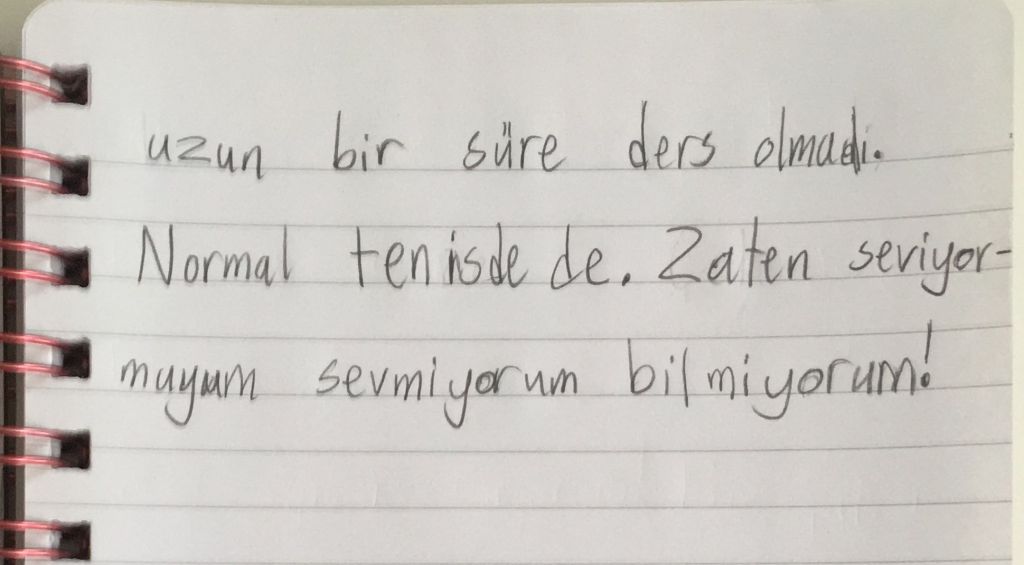 uzun bir süre ders olmadı.
Normal tenisde de. Zaten seviyor-
muyum sevmiyorum bilmiyorum!